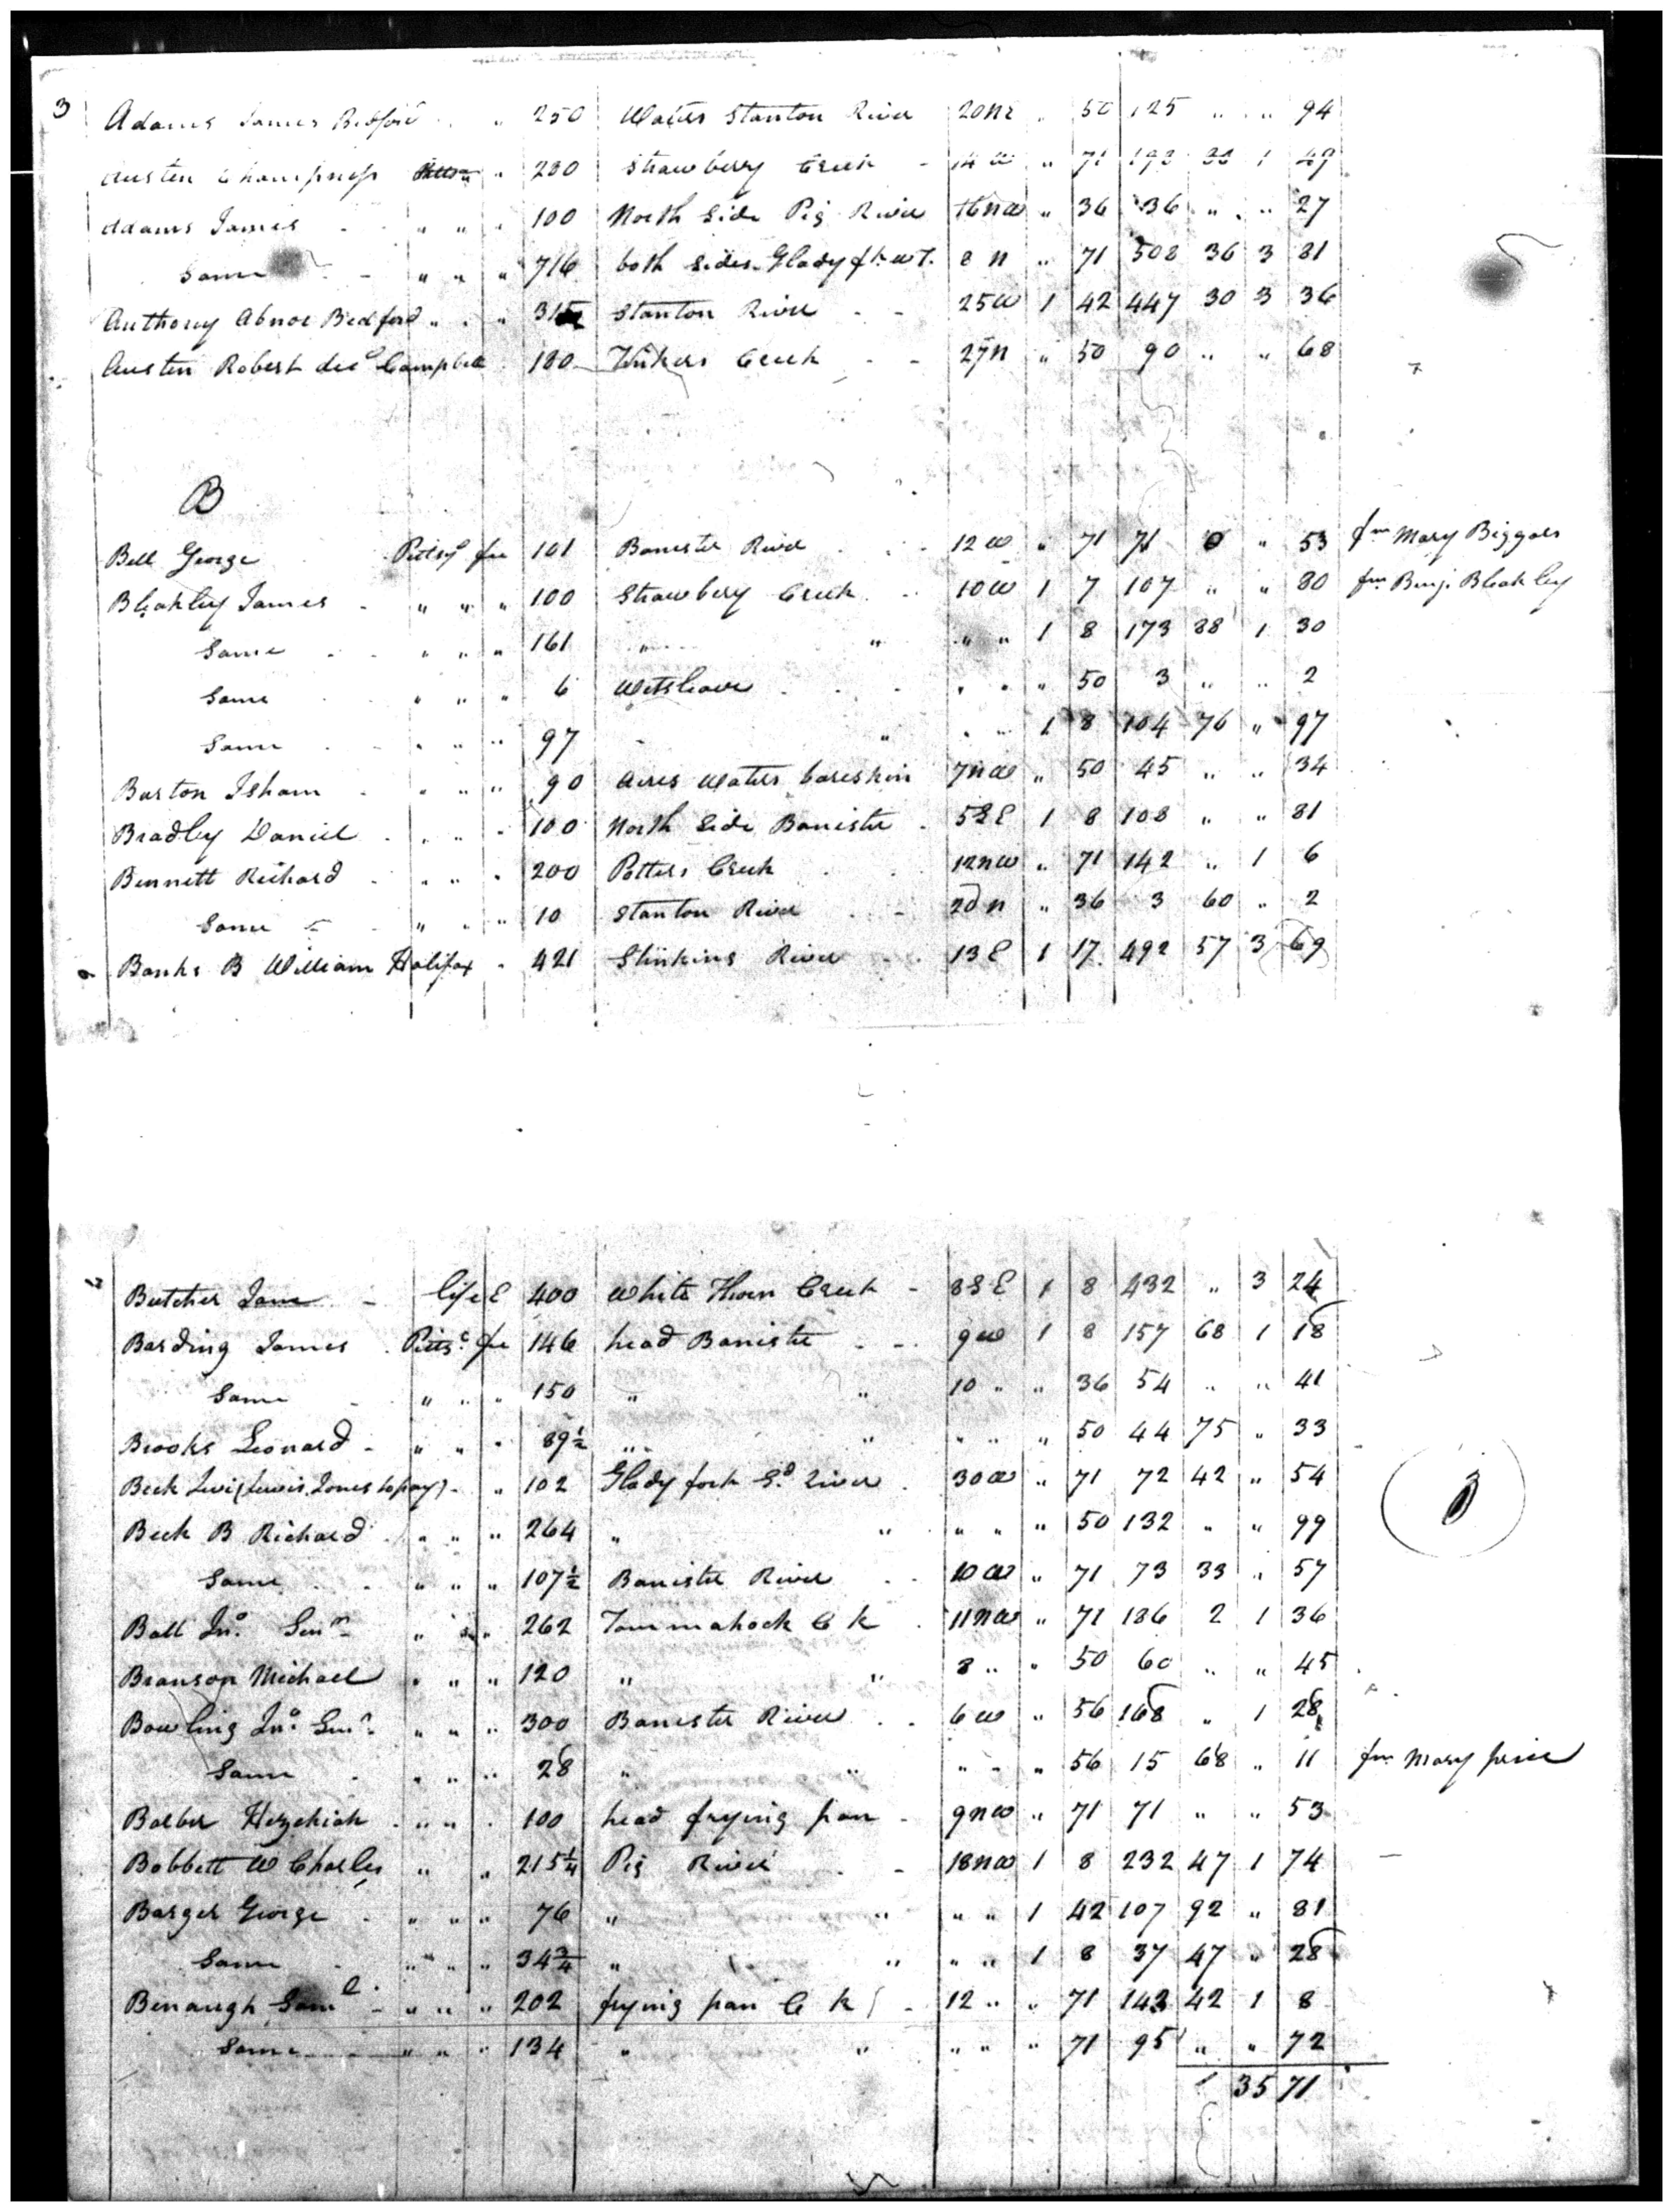 3 Adams James Bedford " 250 Waters Stanton River 20NE " 50 125 " " 94
Austen Champness " 280 Strawbery Creek - 14 W " 71 198 80 1 49
Adams James - " " " 100 North Side Pig River 16NW " 36 36 " " 27
Same - " " " 716 both Sides Glady fk W T. 8 N " 71 508 36 3 81
Anthony Abnor Bedford " " " 315 Stanton River - - 25W 1 42 447 30 3 36
Austen Robert decd Campbell 180 Tinkers Creek - - 27N " 50 90 " " 68
B
Bell George Pittsa fee 101 Banister River 12 W " 71 71 0 " 53 fm Mary Biggars
Bleakley James - " " " 100 Strawbery Creek 10W 1 7 107 " " 80 fm Benj. Bleakley
Same - - " " " 161 " " " " 1 8 173 88 1 30
Same " " " 6 Wetsleave - - - " " " 50 3 " " 2
Same " " " 97 " " " 1 8 104 76 " 97
Burton Isham - " " " 90 Acres Waters bareskin 7NW " 50 45 " " 34
Bradley Daniel - " " " 100 North Side Banister - 5SE 1 8 108 " " 81
Bennett Richard - " " " 200 Potters Creek 12NW " 71 142 " 1 6
Same - " " " 10 Stanton River - 20 N " 36 3 60 " 2
Banks B William Halifax " 421 Stinking River - 13 E 1 17 492 57 3 69
Butcher Jane - life E 400 White Thorn Creek - 8SE 1 8 432 " 3 24
Barding James Pittsa fee 146 head Banister - - 9W 1 8 157 68 1 18
Same - " " " 150 " " 10 " " 36 54 " " 41
Brooks Leonard - " " " 89½ " " " " " 50 44 75 " 33
Beck Levi (Lewis Jones to pay) - " 102 Glady fork Sd River 30W " 71 72 42 " 54
Beck B Richard " " " 264 " " " " " 50 132 " " 99
Same - - " " " 107½ Banister River - - 10 W " 71 73 33 " 57
Ball Jno. Senr " " " 262 Tommahock C K 11NW " 71 186 2 1 36
Branson Michael " " " 120 " " 8 " " 50 60 " " 45
Bowling Jno. Senr. " " " 300 Banister River - - 6W " 56 168 " 1 28
Same - " " " 28 " " " " " 56 15 68 " 11 fm Mary price
Balber Hezekiah - " " " 100 head frying pan - 9NW " 71 71 " " 53
Bobbett W Charles " " 215¼ Pig River - 18NW 1 8 232 47 1 74
Barger George - " " " 76 " " " " 1 42 107 92 " 81
Same - " " " 34¾ " " " " 1 8 37 47 " 28
Benaugh Saml. - " " " 202 frying pan C K - 12 " " 71 143 42 1 8
Same " " " 134 " " " " " 71 95 " " 72
35 71